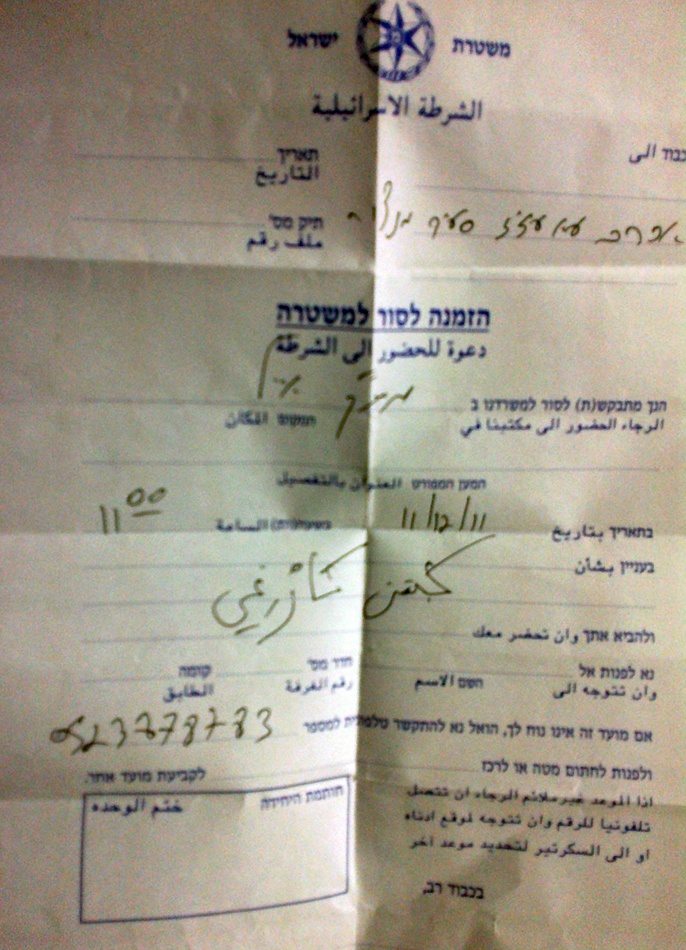 משטרת ישראל
الشرطة الاسرائيلية
לכבוד الى
תאריך
التاريخ
תיק מס'
ملف رقم
הזמנה לסור למשטרה
دعوة للحضور الى الشرطة
הנך מתבקש(ת) לסור למשרדנו ב
الرجاء الحضور الى مكتبنا في المكان
המען המפורט العنوان بالتفصيل
בתאריך بتاريخ 11/12/11 בשעה الساعة 11 00
בעניין بشأن
كبتن
ולהביא אתך وان تحضر معك
נא לפנות אל השם الاسم חדר מס' קומה
وان تتوجه الى رقم الغرفة الطابق
אם מועד זה אינו נוח לך, הואל נא להתקשר טלפונית למספר 0523778783
ולפנות לחתום מטה או לרכז לקביעת מועד אחר.
اذا الموعد غير ملائم الرجاء ان تتصل
تلفونيا للرقم وان تتوجه لموقع ادناه
او الى السكرتير لتحديد موعد آخر
חותמת היחידה ختم الوحده
בכבוד רב,